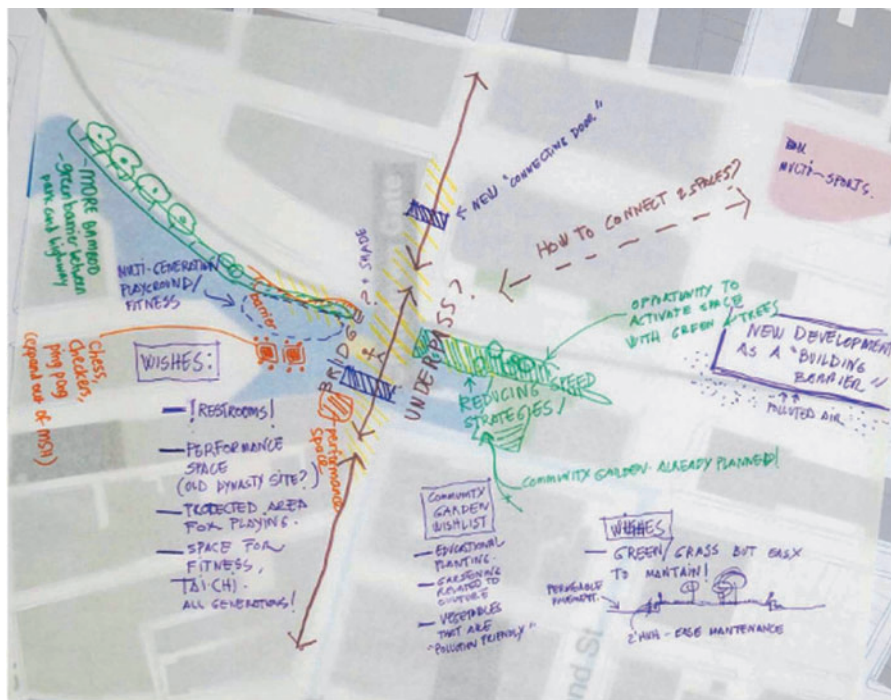 - MORE BAMBOO
- green barrier between
park and highway
MULTI-GENERATION
PLAYGROUND/
FITNESS
barrier
Chess,
Checkers,
ping pong
(expand out of MSH)
WISHES:
- ! RESTROOMS!
- PERFORMANCE
SPACE
(OLD DYNASTY SITE?)
- PROTECTED AREA
FOR PLAYING.
- SPACE FOR
FITNESS,
TAI-CHI.
ALL GENERATIONS!
BRIDGE? + SHADE
Gate
performance
space
UNDERPASS?
NEW "CONNECTING DOOR"
HOW TO CONNECT 2 SPACES?
MULTI-SPORTS.
OPPORTUNITY TO
ACTIVATE SPACE
WITH GREEN / TREES
NEW DEVELOPMENT
AS A "BUILDING
BARRIER"
POLLUTED AIR
REDUCING SPEED
STRATEGIES!
COMMUNITY GARDEN - ALREADY PLANNED!
COMMUNITY
GARDEN
WISHLIST
- EDUCATIONAL
PLANTING.
- GARDENING
RELATED TO
CULTURE
- VEGETABLES
THAT ARE
"POLLUTION FRIENDLY"
WISHES
- GREEN/GRASS BUT EASY
TO MANTAIN!
PERMEABLE
PAVEMENT.
EASE MAINTENANCE
nd St